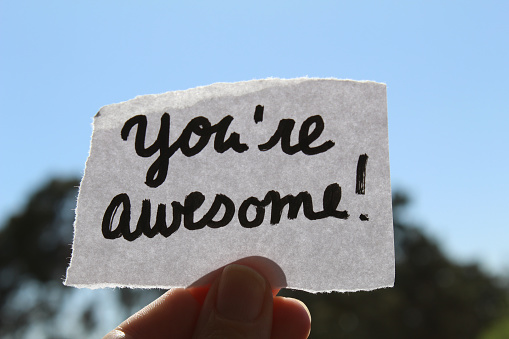 You're
awesome!